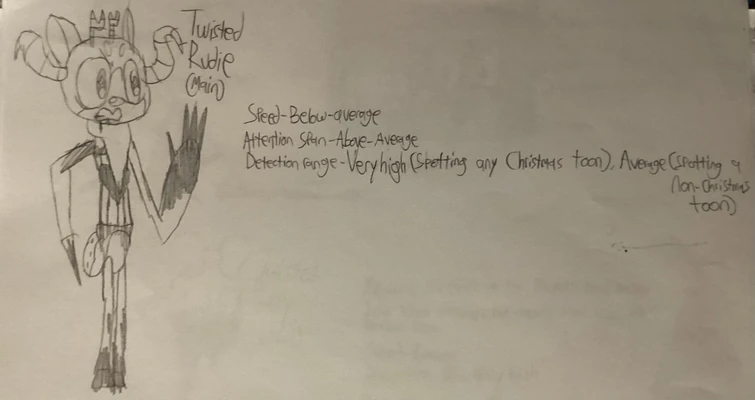 Twisted
Rudie
(Main)
Speed-Below-average
Attention Span-Above-Average
Detection range-Very high (Spotting any Christmas toon), Average (Spotting a
non-Christmas
toon)